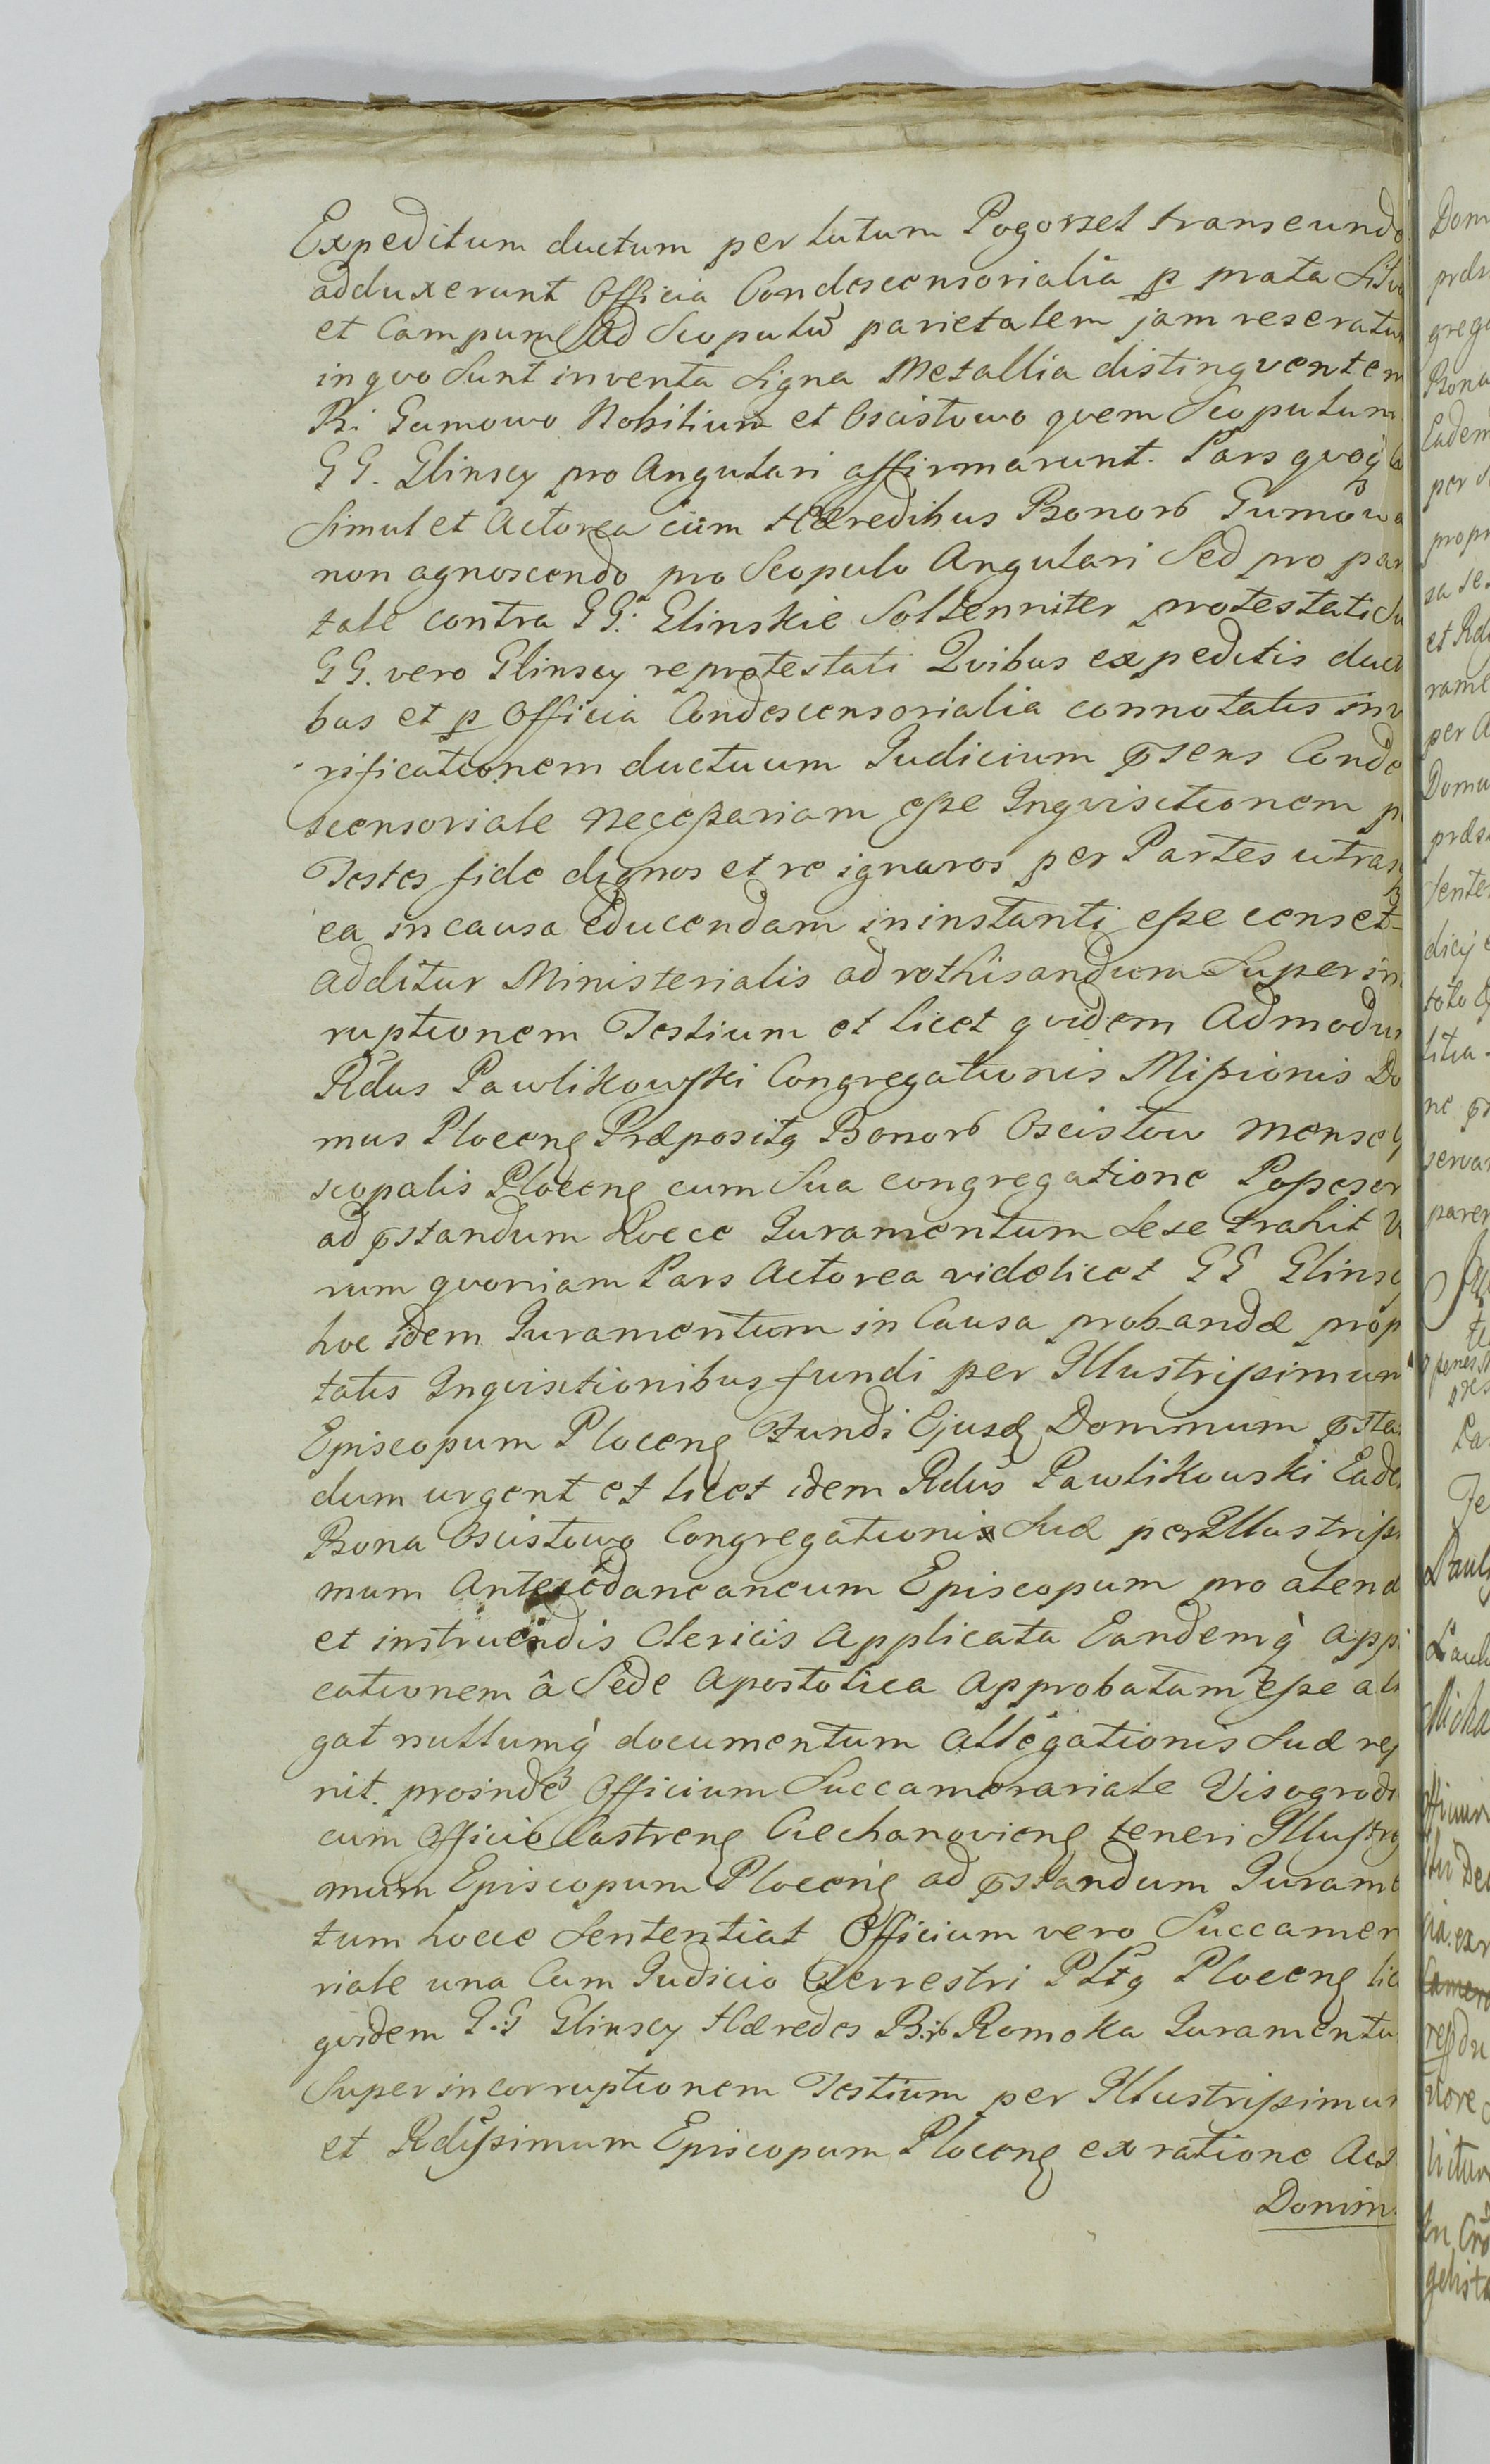 Expeditum ductum per lutum Pogorzel transeundo
adduxerunt Officia Condescensorialia p prata Silva
et Campum ad Scopulū parietalem jam reseratu
in qvo Sunt inventa Signa Metallia distingventem
B: Gumowo Nobilium et Oscistowo qvem Scopulum
GG. Glinscy pro Angulari affirmarunt. Pars qvoq̃
Simul et Actorea cum Hæredibus Bonorū Gumowa
non agnoscendo pro Scopulo Angulari Sed pro par
tale contra GG: Glinskie Sollenniter protestati Su
GG. vero Glinscy reprotestati Qvibus expeditis duct
bus et p Officia Condescensorialia connotatis inv
rificationem ductuum Judicium p̃sens Conde
scensoriale necessariam esse Inqvisitionem p
Testes fide dignos et re ignaros per Partes utrasq
ea in causa educendam in instanti esse censet
additur Ministerialis ad rothisandum Super in
ruptionem Testium et licet qvidem Admodu
Rdus Pawlikowski Congregationis Missionis Do
mus Ploceng Præpositq Bonorū Oscistow mensæ
scopalis Ploceng cum Sua congregatione Possesor
ad p̃standum hocce Juramentum Sese trahit V
rum qvoniam Pars Actorea videlicet GG Glinscy
hoc idem Juramentum in Causa probandæ prop
tatis Inqvisitionibus fundi per Illustrissimum
Episcopum Ploceng Fundi Ejusd Dominum p̃sta
dum urgent et licet idem Rdus Pawlikowski Eade
Bona Oscistowo Congregationis Suæ per Illustrissi
mum Antecedaneaneum Episcopum pro alend
et instruendis Clericis Applicata Eandemq̀ app
cationem â Sede Apostolica Approbatam esse al
gat nullumq̀ documentum allegationis Suæ rep
nit. proinde Officium Succamerariale Visogrod
cum Officio Castreng Ciechanovieng teneri Illustris
mum Episcopum Ploceng ad p̃standum Jurame
tum hocce Sententiat Officium vero Succamer
riale una Cum Judicio Terrestri Pltg Ploceng lic
qvidem G:G Glinscy Hæredes B:rū Romoka Juramentu
Super incorruptionem Testium per Illustrissimu
et Rdissimum Episcopum Ploceng ex ratione Act
Domin